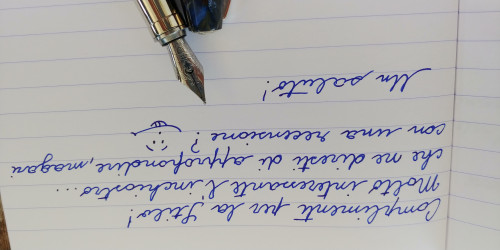 Complimenti per la Stilo!
Molto interessante l'inchiostro...
che ne diresti di approfondire, magari
con una recensione?
Un saluto!